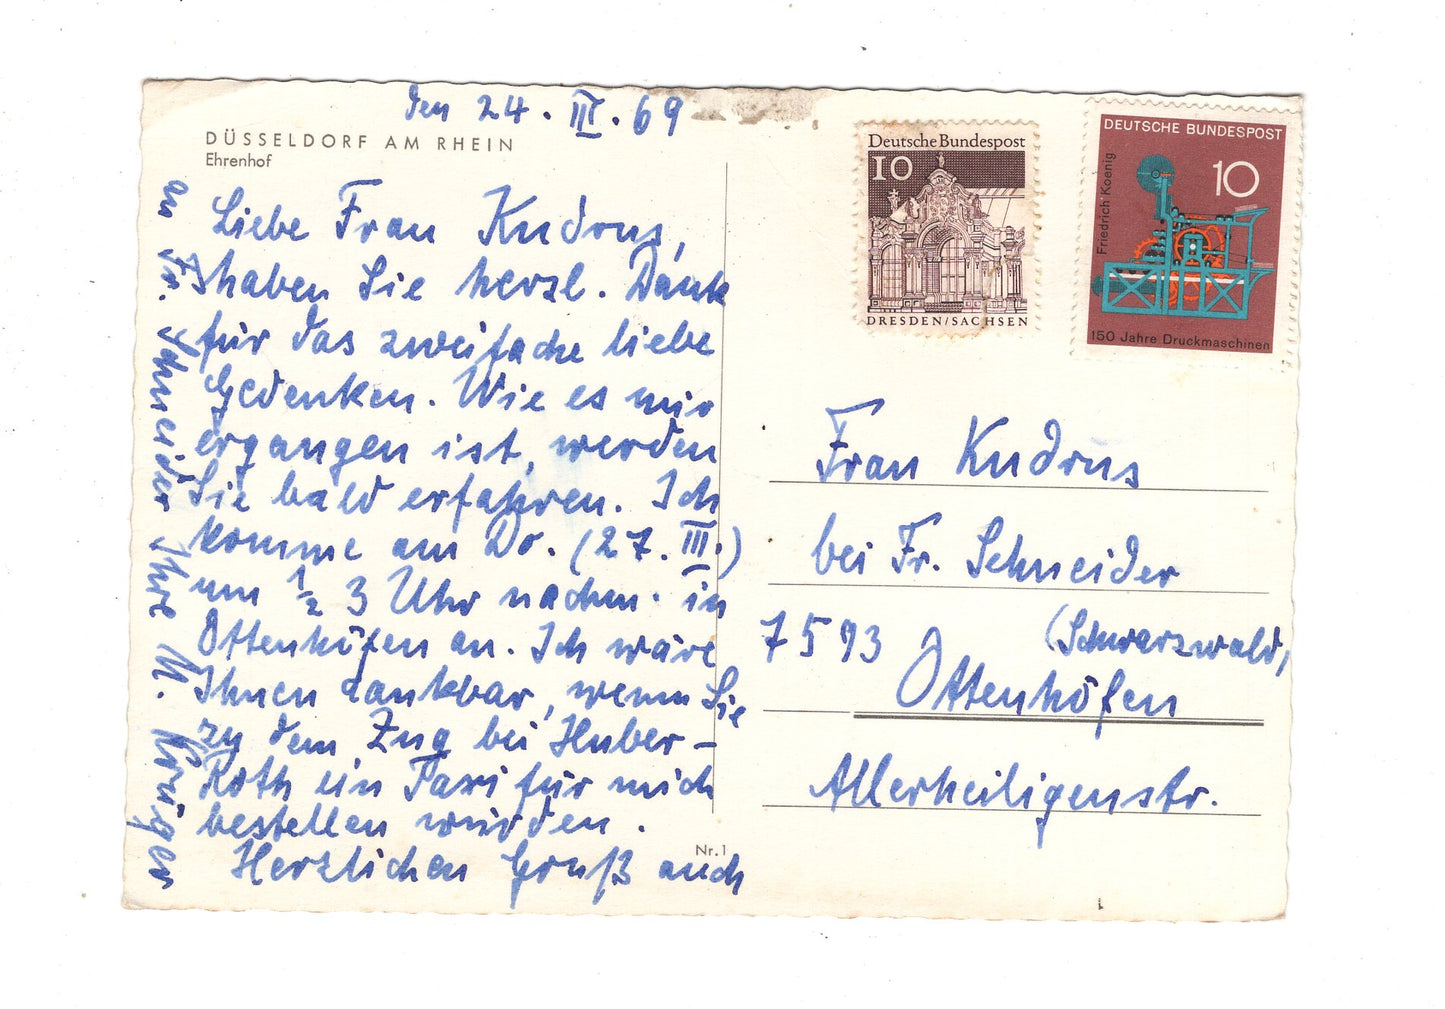 den 24. III. 69
DÜSSELDORF AM RHEIN
Ehrenhof
Liebe Frau Kudrus,
haben Sie herzl. Dank
für das zweifache liebe
Gedenken. Wie es mir
ergangen ist, werden
Sie bald erfahren. Ich
komme am Do. (27. III.)
um ½ 3 Uhr nachm. in
Ottenhöfen an. Ich wäre
Ihnen dankbar, wenn Sie
zu dem Zug bei Huber-
Roth ein Taxi für mich
bestellen würden.
Herzlichen Gruß auch
an Fr. Schneider Ihre M. Krüger
Nr. 1
Deutsche Bundespost
10
DRESDEN/SACHSEN
DEUTSCHE BUNDESPOST
10
Friedrich Koenig
150 Jahre Druckmaschinen
Frau Kudrus
bei Fr. Schneider
7593 (Schwarzwald,
Ottenhöfen
Allerheiligenstr.